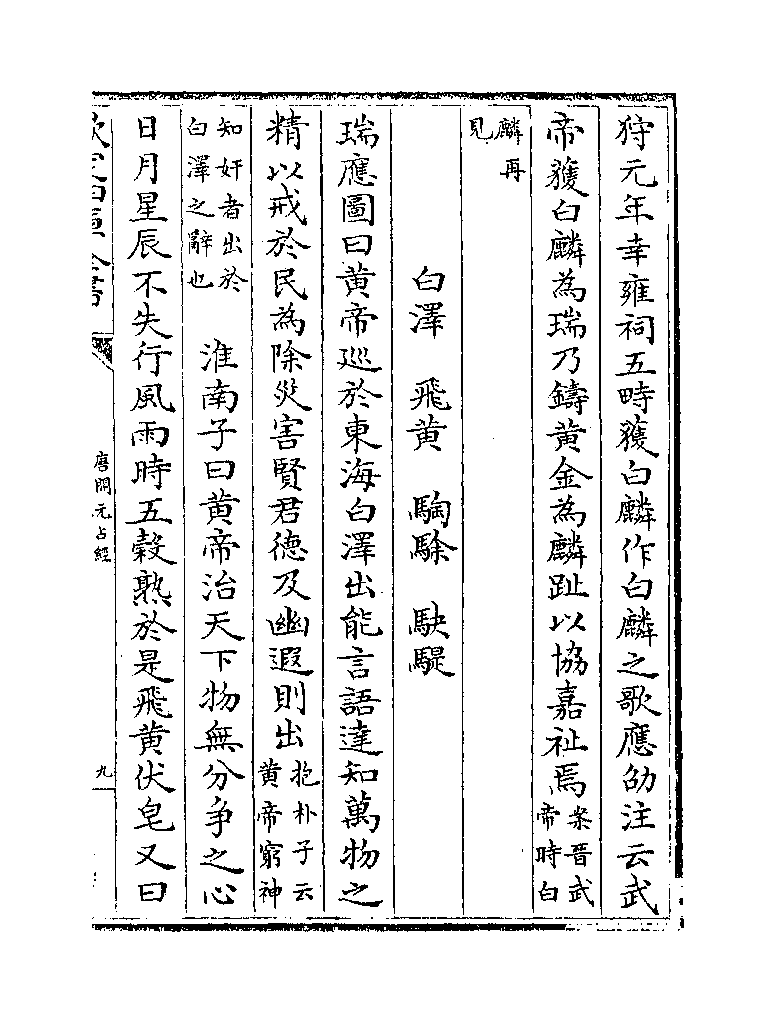 狩元年幸雍祠五畤獲白麟作白麟之歌應劭注云武
帝獲白麟為瑞乃鑄黄金為麟趾以協嘉祉焉案晋武帝時白
麟再見
白澤　飛黄　騊駼　駃騠
瑞應圖曰黄帝巡於東海白澤出能言語達知萬物之
精以戒於民為除災害賢君德及幽遐則出抱朴子云黄帝窮神
知奸者出於白澤之辭也　淮南子曰黄帝治天下物無分争之心
日月星辰不失行風雨時五穀熟於是飛黄伏皂又曰
唐開元占經
九